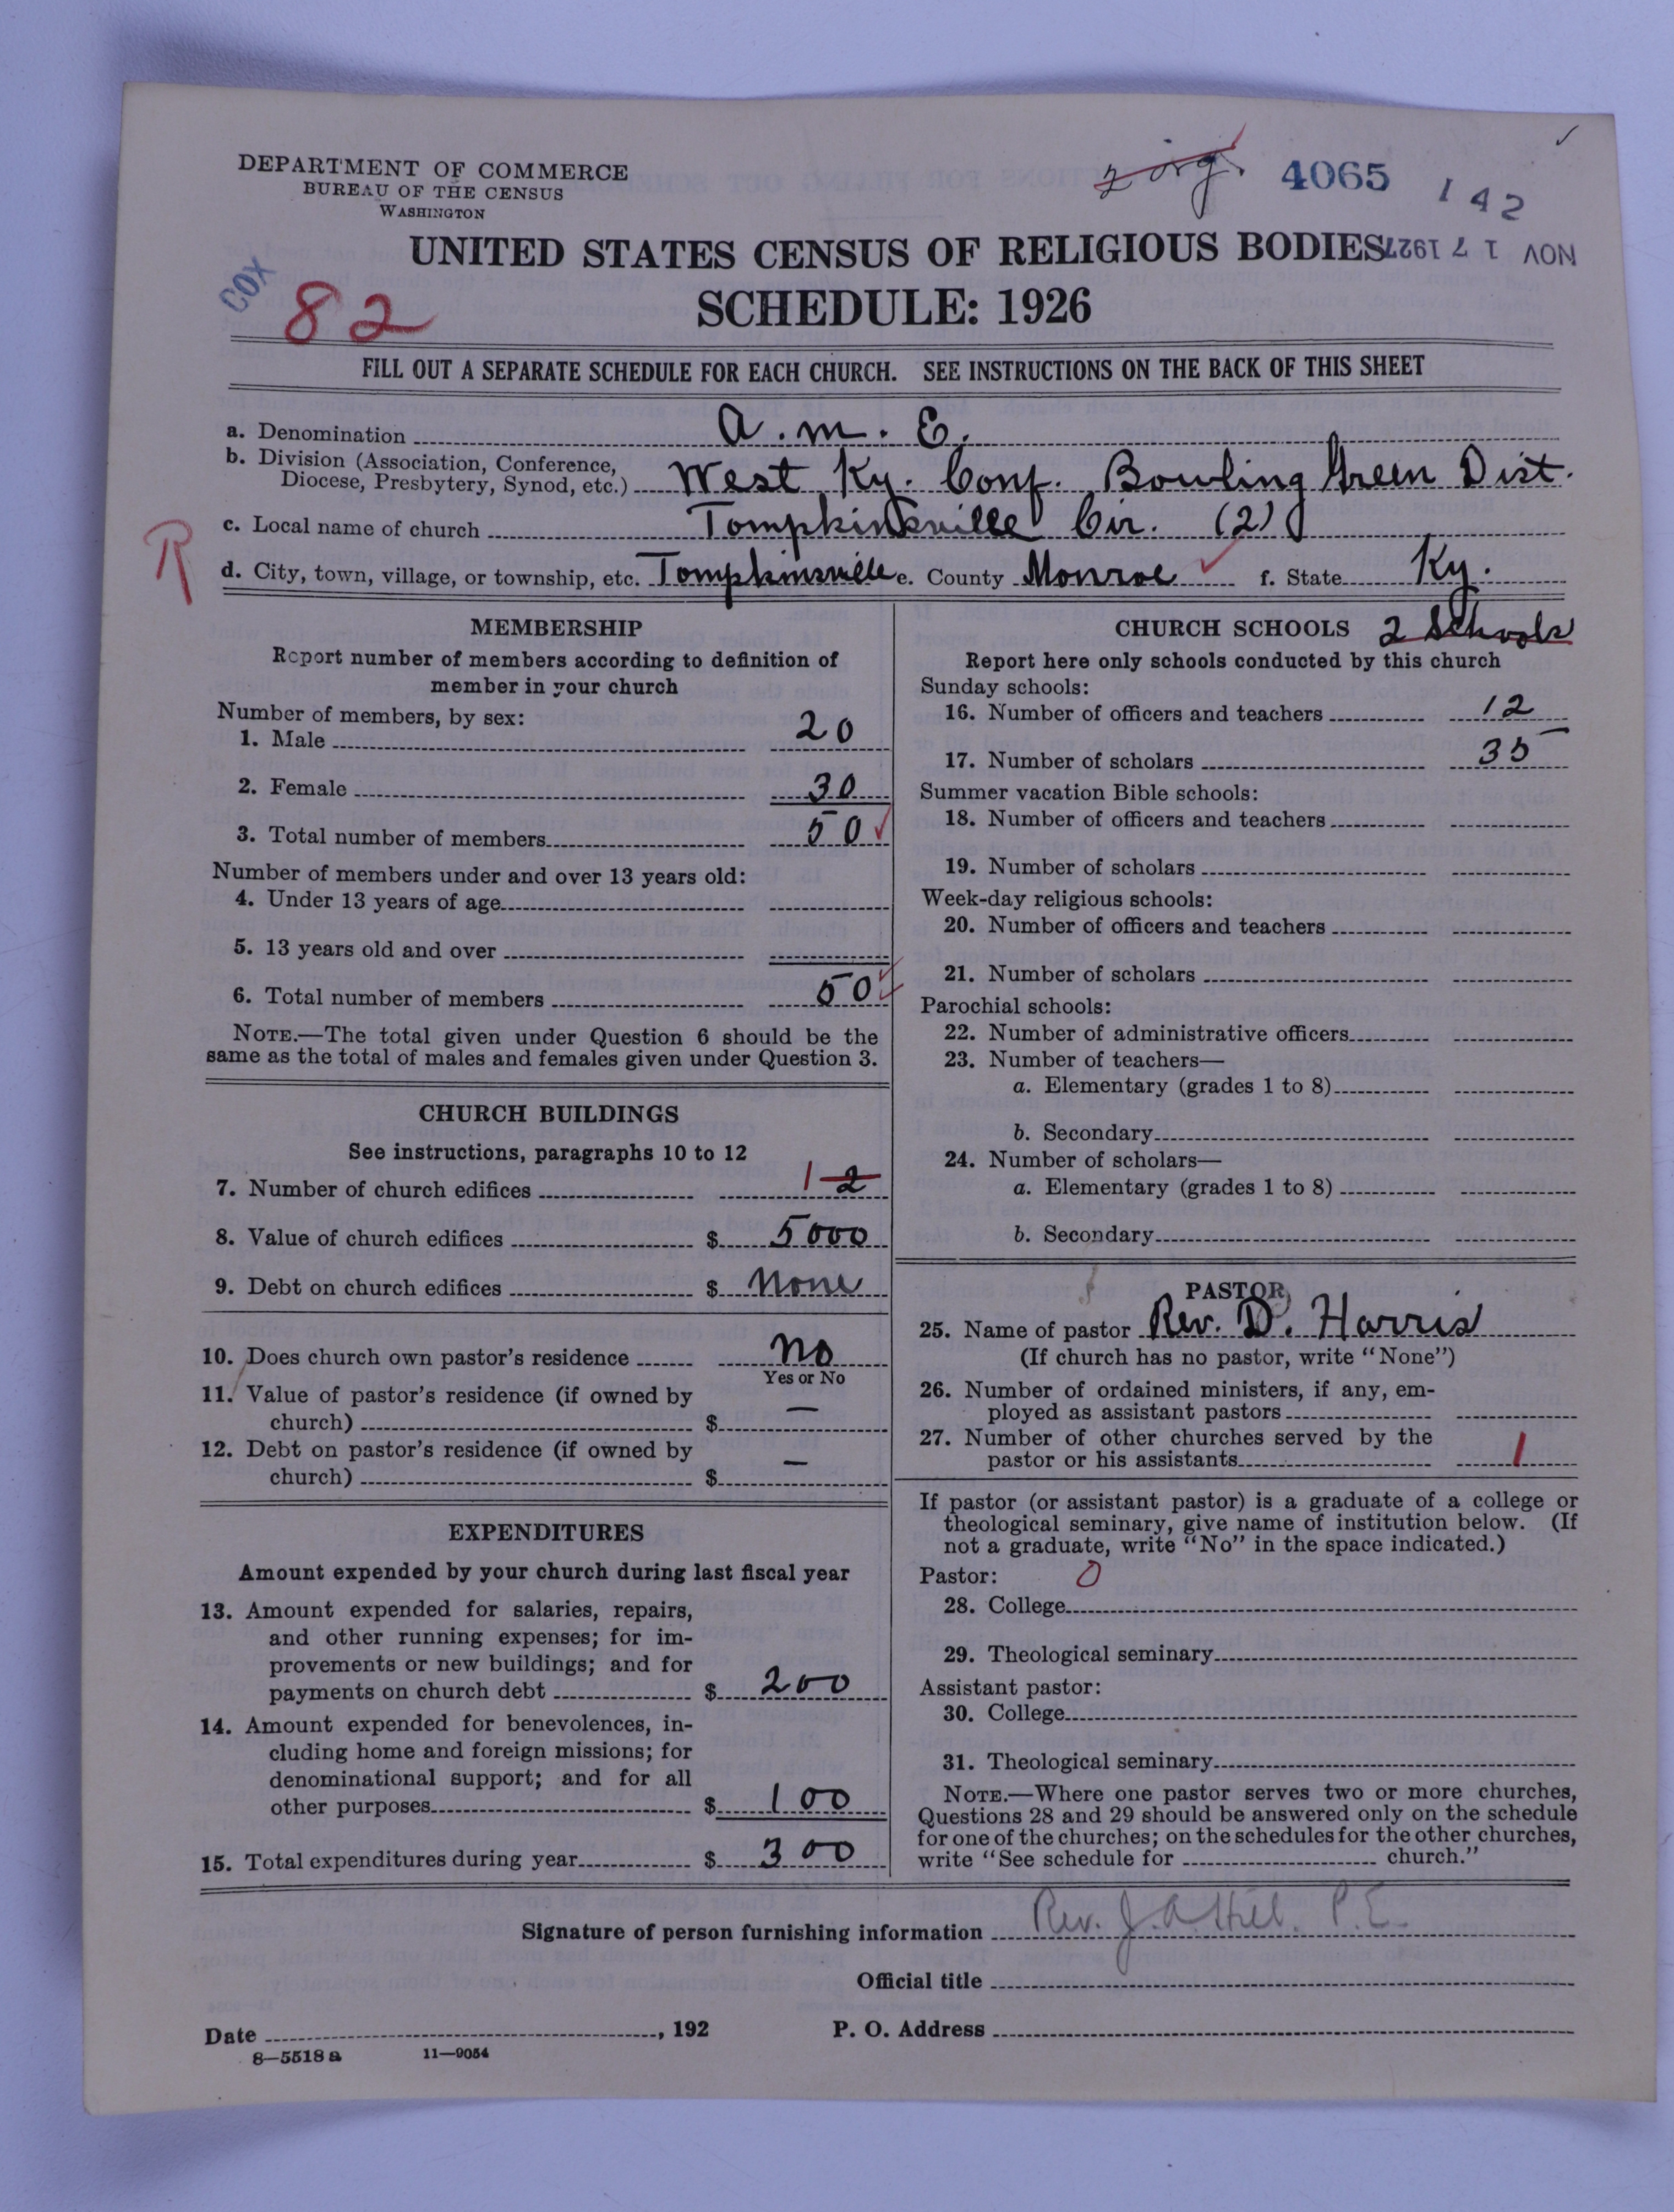 DEPARTMENT OF COMMERCE
BUREAU OF THE CENSUS
WASHINGTON
2 org. 4065 142
UNITED STATES CENSUS OF RELIGIOUS BODIES
NOV 17 1927
COX
82
SCHEDULE: 1926
FILL OUT A SEPARATE SCHEDULE FOR EACH CHURCH. SEE INSTRUCTIONS ON THE BACK OF THIS SHEET
a. Denomination A. M. E.
b. Division (Association, Conference, Diocese, Presbytery, Synod, etc.) West Ky. Conf. Bowling Green Dist.
c. Local name of church Tompkinsville Cir. (2)
R
d. City, town, village, or township, etc. Tompkinsville e. County Monroe f. State Ky.
MEMBERSHIP
Report number of members according to definition of
member in your church
Number of members, by sex:
1. Male 20
2. Female 30
3. Total number of members 50
Number of members under and over 13 years old:
4. Under 13 years of age
5. 13 years old and over
6. Total number of members 50
NOTE.—The total given under Question 6 should be the
same as the total of males and females given under Question 3.
CHURCH BUILDINGS
See instructions, paragraphs 10 to 12
7. Number of church edifices 1 2
8. Value of church edifices $ 5000
9. Debt on church edifices $ None
10. Does church own pastor's residence No
Yes or No
11. Value of pastor's residence (if owned by
church) $ —
12. Debt on pastor's residence (if owned by
church) $ —
EXPENDITURES
Amount expended by your church during last fiscal year
13. Amount expended for salaries, repairs,
and other running expenses; for im-
provements or new buildings; and for
payments on church debt $ 200
14. Amount expended for benevolences, in-
cluding home and foreign missions; for
denominational support; and for all
other purposes $ 100
15. Total expenditures during year $ 300
CHURCH SCHOOLS 2 Schools
Report here only schools conducted by this church
Sunday schools:
16. Number of officers and teachers 12
17. Number of scholars 35
Summer vacation Bible schools:
18. Number of officers and teachers
19. Number of scholars
Week-day religious schools:
20. Number of officers and teachers
21. Number of scholars
Parochial schools:
22. Number of administrative officers
23. Number of teachers—
a. Elementary (grades 1 to 8)
b. Secondary
24. Number of scholars—
a. Elementary (grades 1 to 8)
b. Secondary
PASTOR
25. Name of pastor Rev. D. Harris
(If church has no pastor, write "None")
26. Number of ordained ministers, if any, em-
ployed as assistant pastors
27. Number of other churches served by the
pastor or his assistants 1
If pastor (or assistant pastor) is a graduate of a college or
theological seminary, give name of institution below. (If
not a graduate, write "No" in the space indicated.)
Pastor: 0
28. College
29. Theological seminary
Assistant pastor:
30. College
31. Theological seminary
NOTE.—Where one pastor serves two or more churches,
Questions 28 and 29 should be answered only on the schedule
for one of the churches; on the schedules for the other churches,
write "See schedule for church."
Signature of person furnishing information Rev. J. A. P. E.
Official title
Date , 192 P. O. Address
8—5518a 11—9054